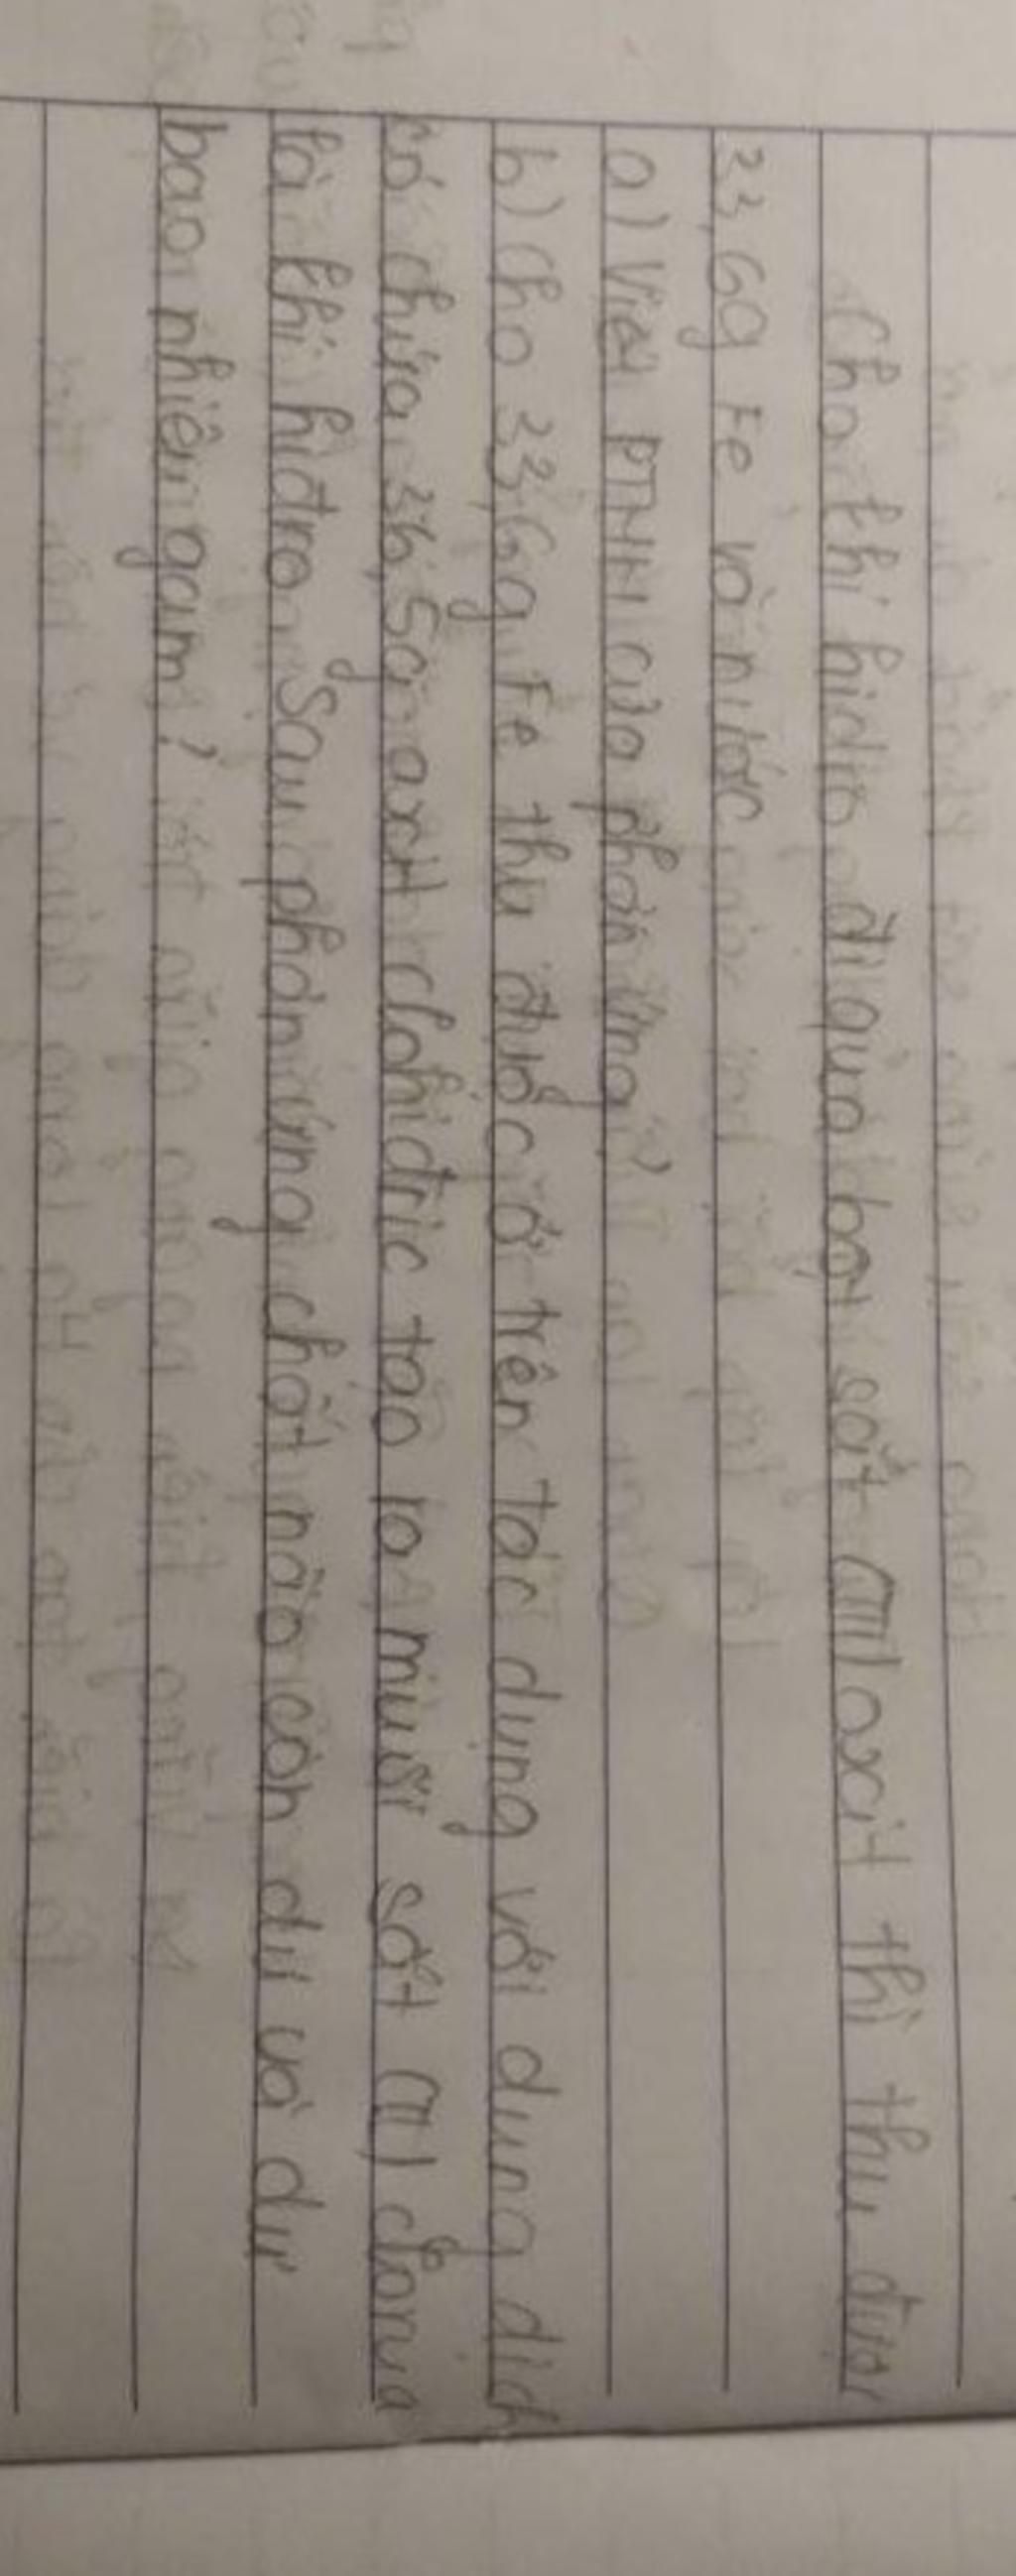 Cho khí hidro đi qua bột sắt (III) oxit thì thu được
33,6g Fe và nước
a) Viết PTHH của phản ứng?
b) Cho 33,6g Fe thu được ở trên tác dụng với dung dịch
có chứa 36,5g axit clohiđric tạo ra muối sắt (II) clorua
và khí hiđro. Sau phản ứng chất nào còn dư và dư
bao nhiêu gam?